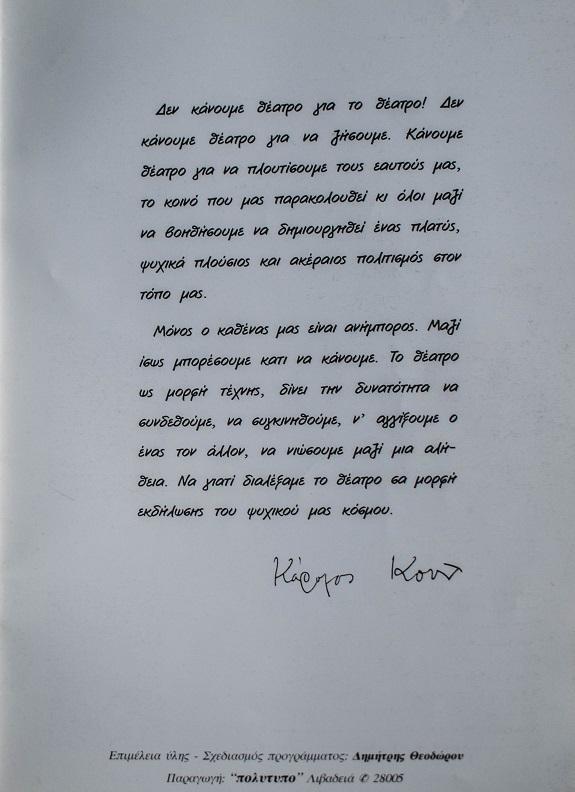 Δεν κάνουμε θέατρο για το θέατρο! Δεν
κάνουμε θέατρο για να ζήσουμε. Κάνουμε
θέατρο για να πλουτίσουμε τους εαυτούς μας,
το κοινό που μας παρακολουθεί κι όλοι μαζί
να βοηθήσουμε να δημιουργηθεί ένας πλατύς,
ψυχικά πλούσιος και ακέραιος πολιτισμός στον
τόπο μας.
Μόνος ο καθένας μας είναι ανήμπορος. Μαζί
ίσως μπορέσουμε κατι να κάνουμε. Το θέατρο
ως μορφή τέχνης, δίνει την δυνατότητα να
συνδεθούμε, να συγκινηθούμε, ν' αγγίξουμε ο
ένας τον άλλον, να νιώσουμε μαζί μια αλή-
θεια. Να γιατί διαλέξαμε το θέατρο σα μορφή
εκδήλωσης του ψυχικού μας κόσμου.
Κάρολος Κουν
Επιμέλεια ύλης - Σχεδιασμός προγράμματος: Δημήτρης Θεοδώρου
Παραγωγή: “πολυτυπο” Λιβαδειά ✆ 28005